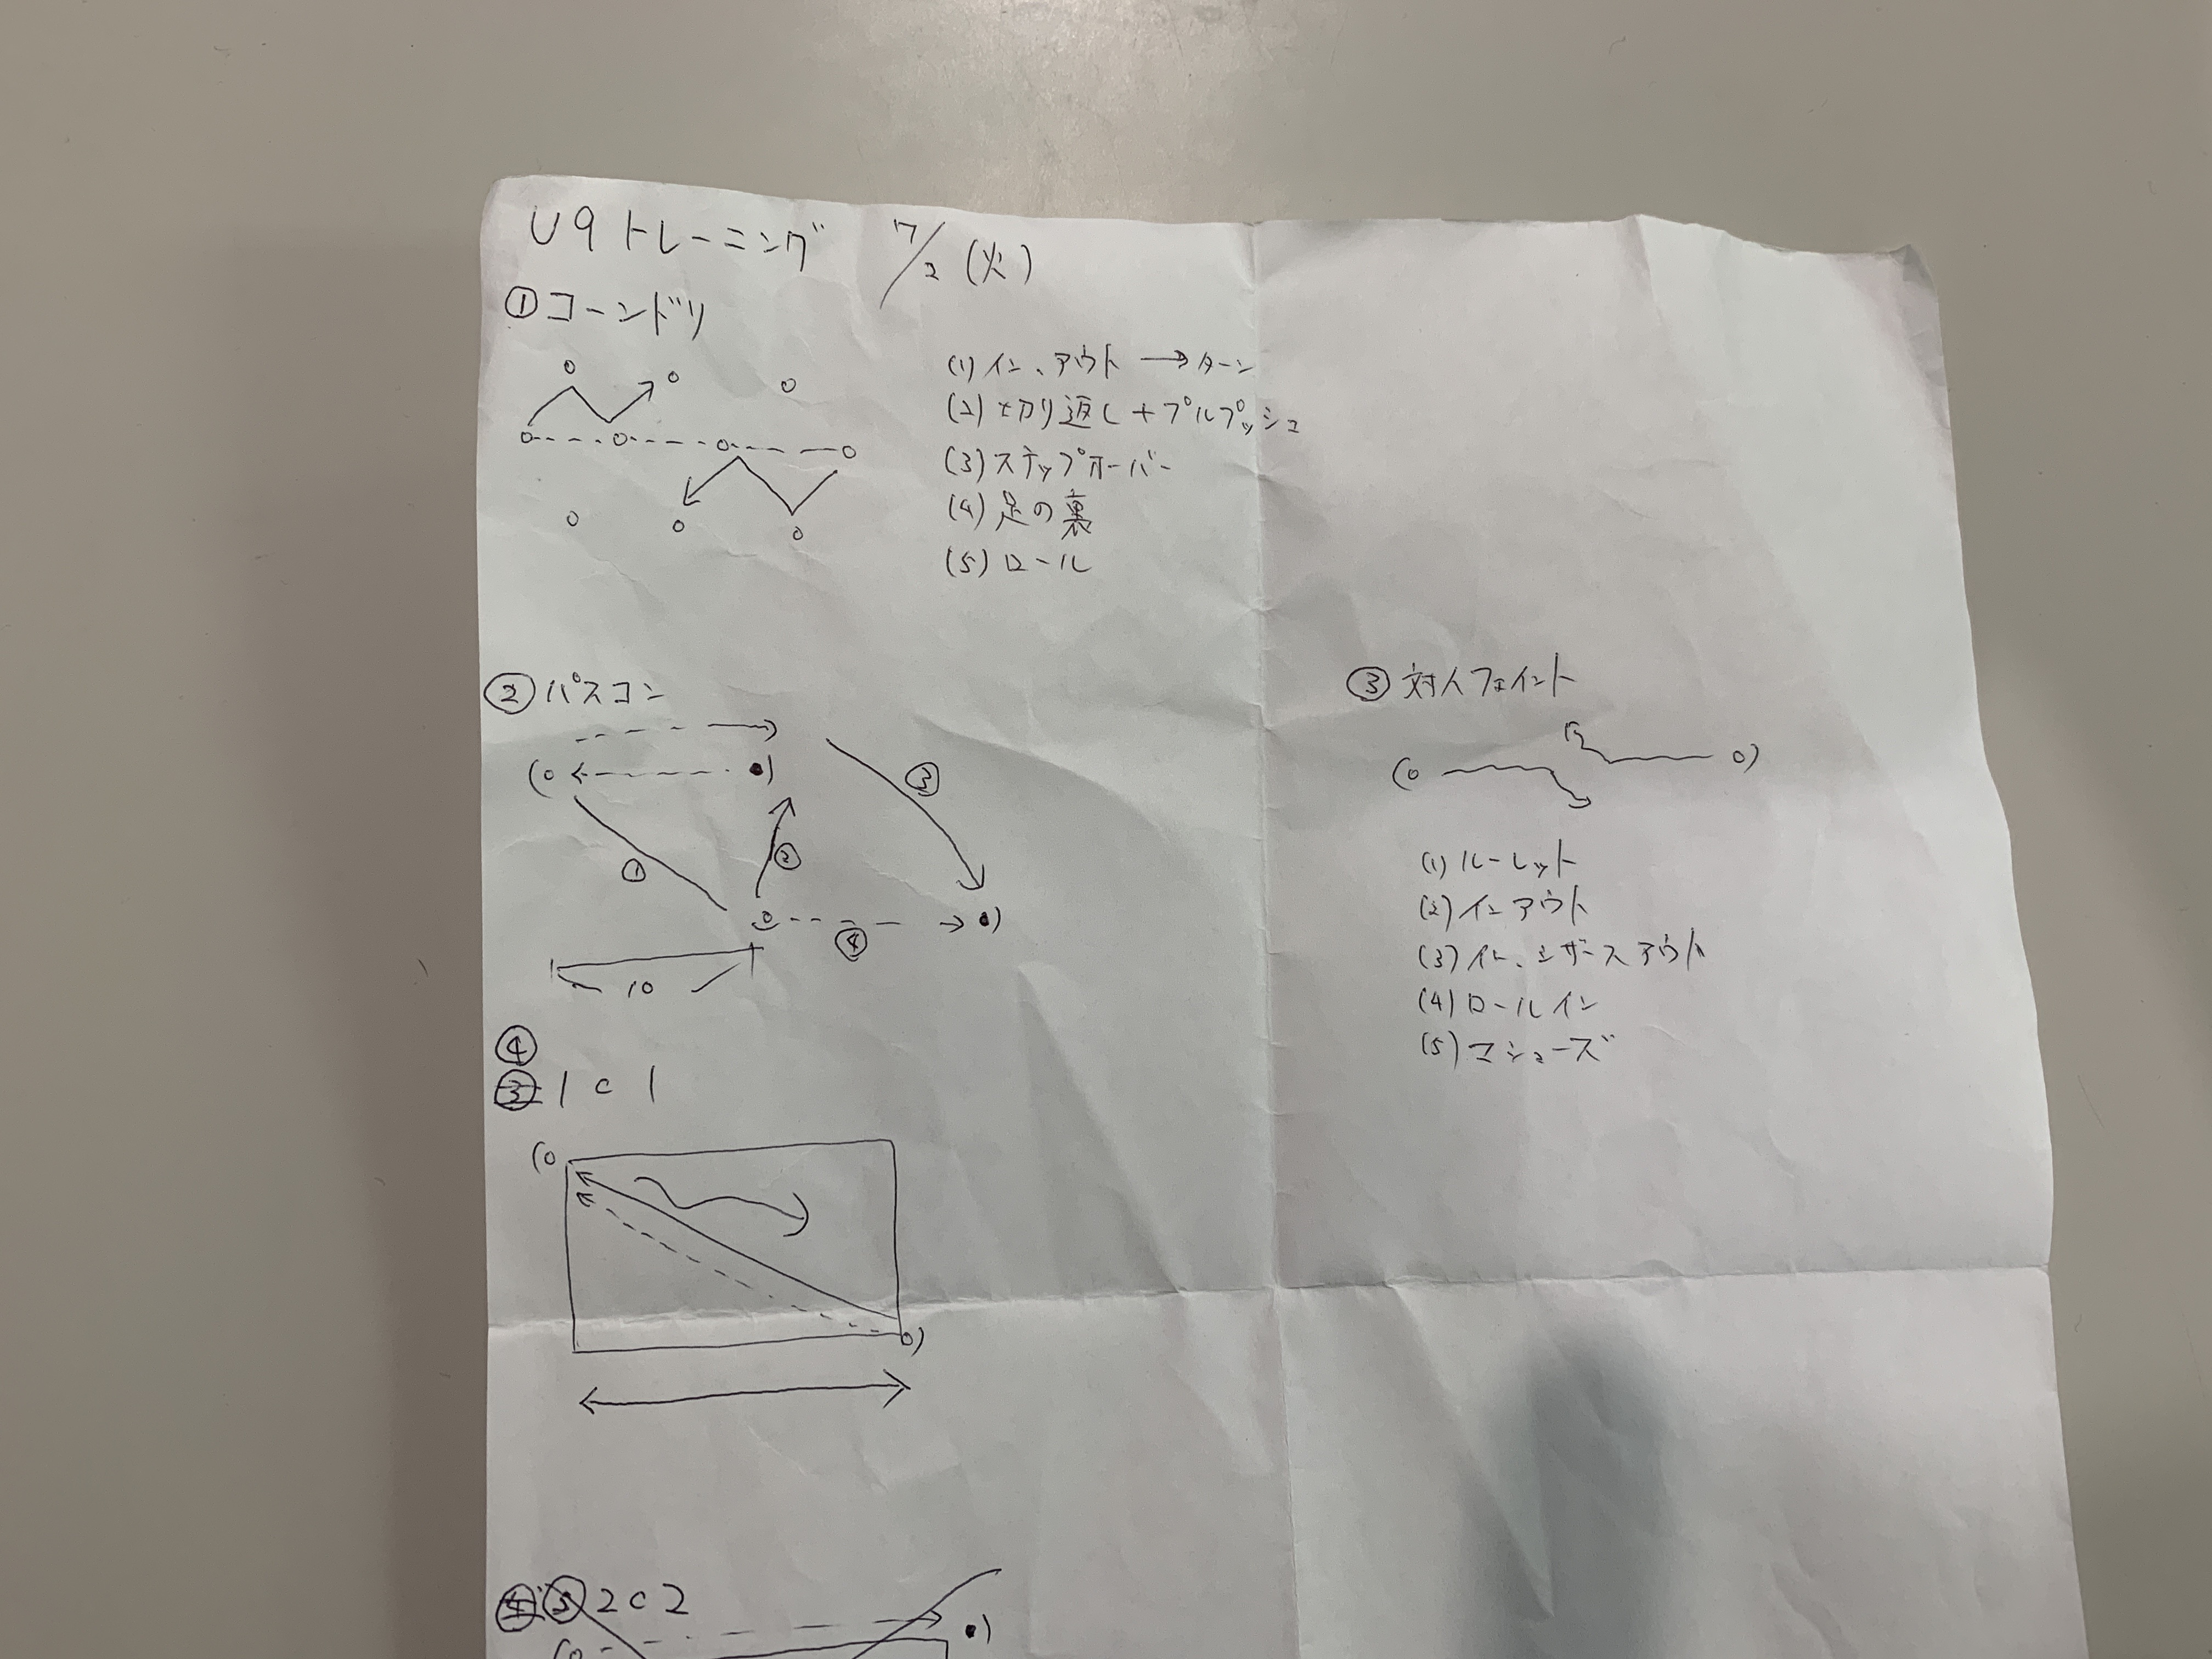 U9トレーニング 7/2 (火)
①コーンドリ
(1)イン、アウト→ターン
(2)切り返し+プルプッシュ
(3)ステップオーバー
(4)足の裏
(5)ロール
②パスコン
①
②
③
④
10
③対人フェイント
(1)ルーレット
(2)インアウト
(3)イン、シザースアウト
(4)ロールイン
(5)マシューズ
④
③1c1
④⑤2c2